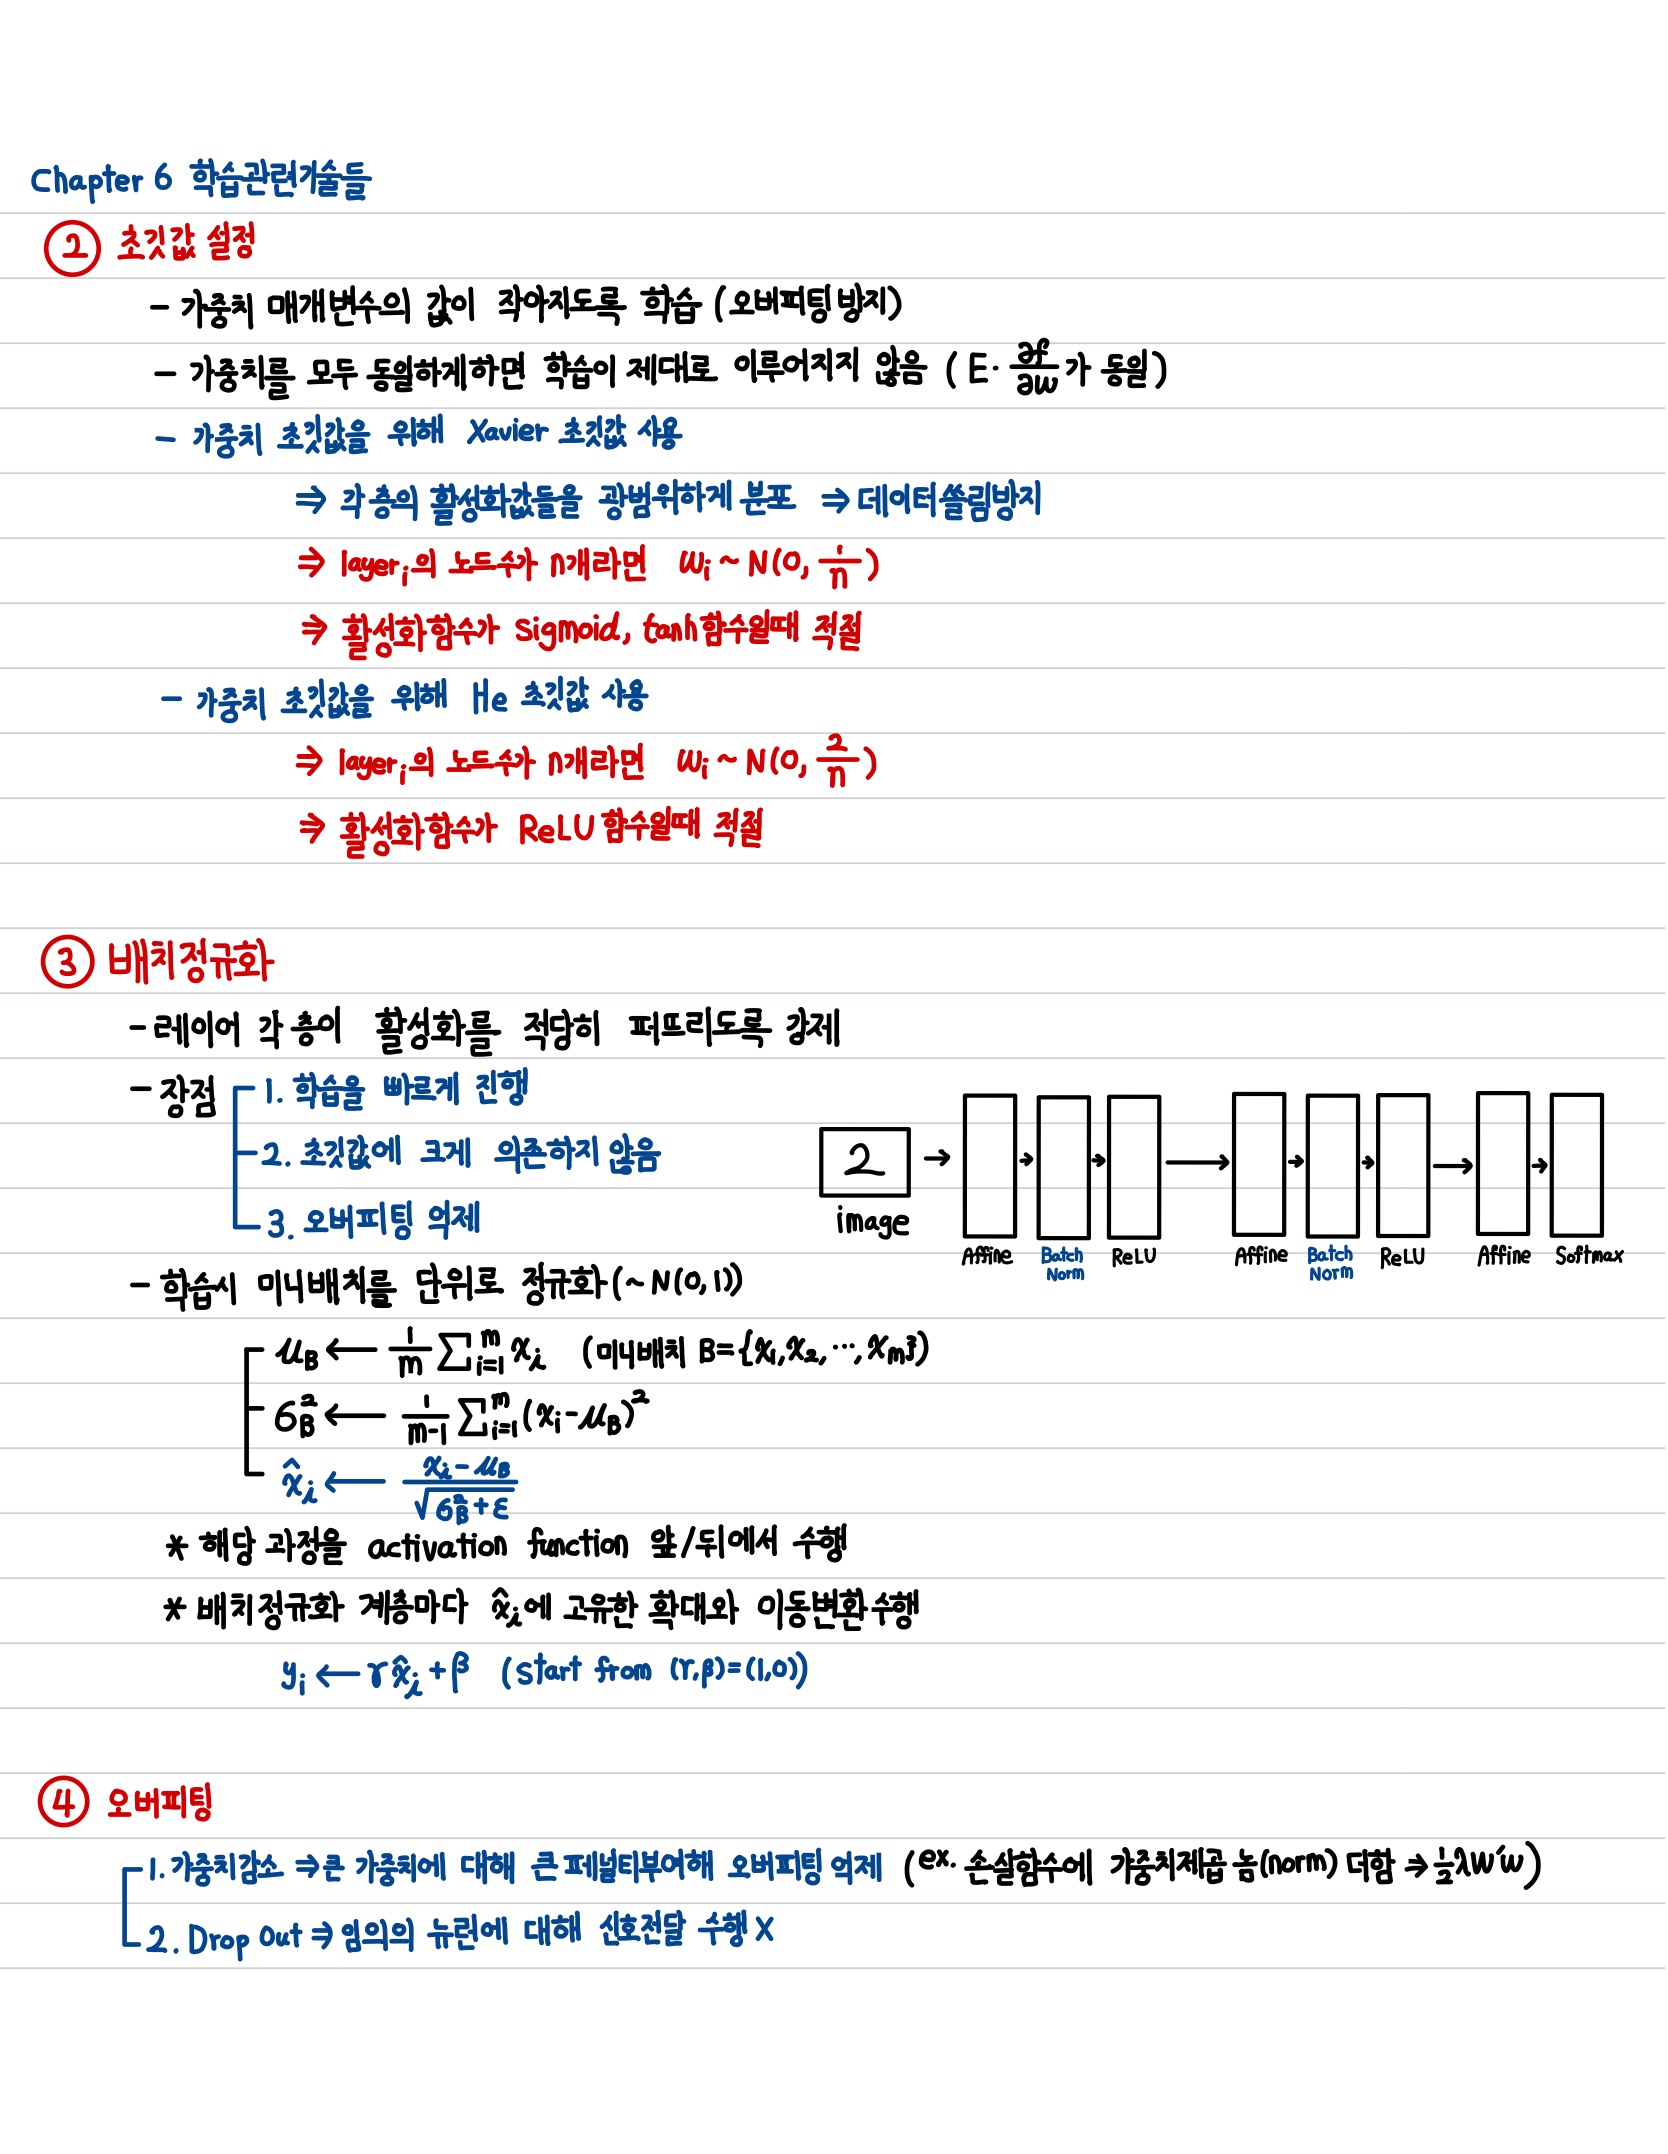 Chapter 6 학습관련기술들
② 초깃값 설정
- 가중치 매개변수의 값이 작아지도록 학습 (오버피팅 방지)
- 가중치를 모두 동일하게하면 학습이 제대로 이루어지지 않음 ( E· ∂f/∂w 가 동일 )
- 가중치 초깃값을 위해 Xavier 초깃값 사용
⇒ 각 층의 활성화값들을 광범위하게 분포 ⇒ 데이터쏠림방지
⇒ layerᵢ의 노드수가 n개라면 wᵢ ~ N(0, 1/n)
⇒ 활성화함수가 sigmoid, tanh함수일때 적절
- 가중치 초깃값을 위해 He 초깃값 사용
⇒ layerᵢ의 노드수가 n개라면 wᵢ ~ N(0, 2/n)
⇒ 활성화함수가 ReLU 함수일때 적절
③ 배치정규화
- 레이어 각 층이 활성화를 적당히 퍼뜨리도록 강제
- 장점
1. 학습을 빠르게 진행
2. 초깃값에 크게 의존하지 않음
3. 오버피팅 억제
2 → → → → → → → →
image
Affine Batch Norm ReLU Affine Batch Norm ReLU Affine Softmax
- 학습시 미니배치를 단위로 정규화 (~ N(0,1))
μ_B ← 1/m Σᵢ₌₁ᵐ xᵢ (미니배치 B={x₁,x₂,⋯,xm})
σ_B² ← 1/(m-1) Σᵢ₌₁ᵐ (xᵢ-μ_B)²
x̂ᵢ ← (xᵢ-μ_B)/√(σ_B²+ε)
* 해당 과정을 activation function 앞/뒤에서 수행
* 배치정규화 계층마다 x̂ᵢ에 고유한 확대와 이동변환수행
yᵢ ← γx̂ᵢ+β (start from (γ,β)=(1,0))
④ 오버피팅
1. 가중치감소 ⇒ 큰 가중치에 대해 큰 페널티부여해 오버피팅 억제 (ex. 손실함수에 가중치제곱 놈(norm) 더함 → ½λW'W)
2. Drop Out ⇒ 임의의 뉴런에 대해 신호전달 수행 X